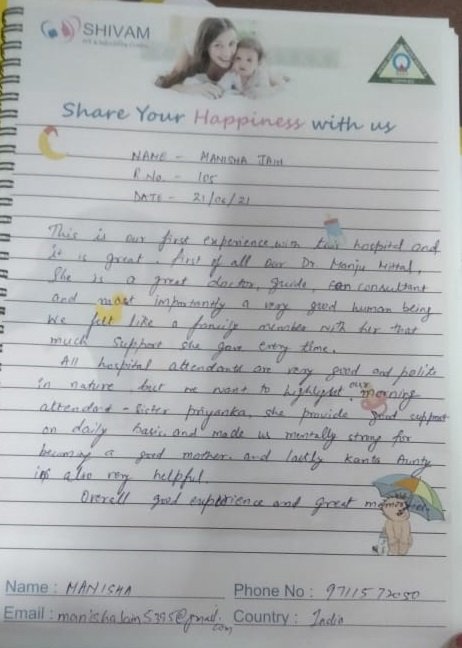 SHIVAM
Share Your Happiness with us
NAME - MANISHA JAIN
R No. - 105
DATE - 21/06/21
This is our first experience with this hospital and
it is great. First of all our Dr Manju Mittal,
She is a great doctor, guide, consultant
and most importantly a very good human being
We felt like a family member with her that
much support she gave every time.
All hospital attendants are very good and polite
in nature but we want to highlight our morning
attendant - Sister priyanka, she provide good support
on daily basis and made us mentally strong for
becoming a good mother and lastly Kanta Aunty
is also very helpful.
Overall good experience and great memories.
Name : MANISHA
Phone No : 9711572050
Email :
Country : India